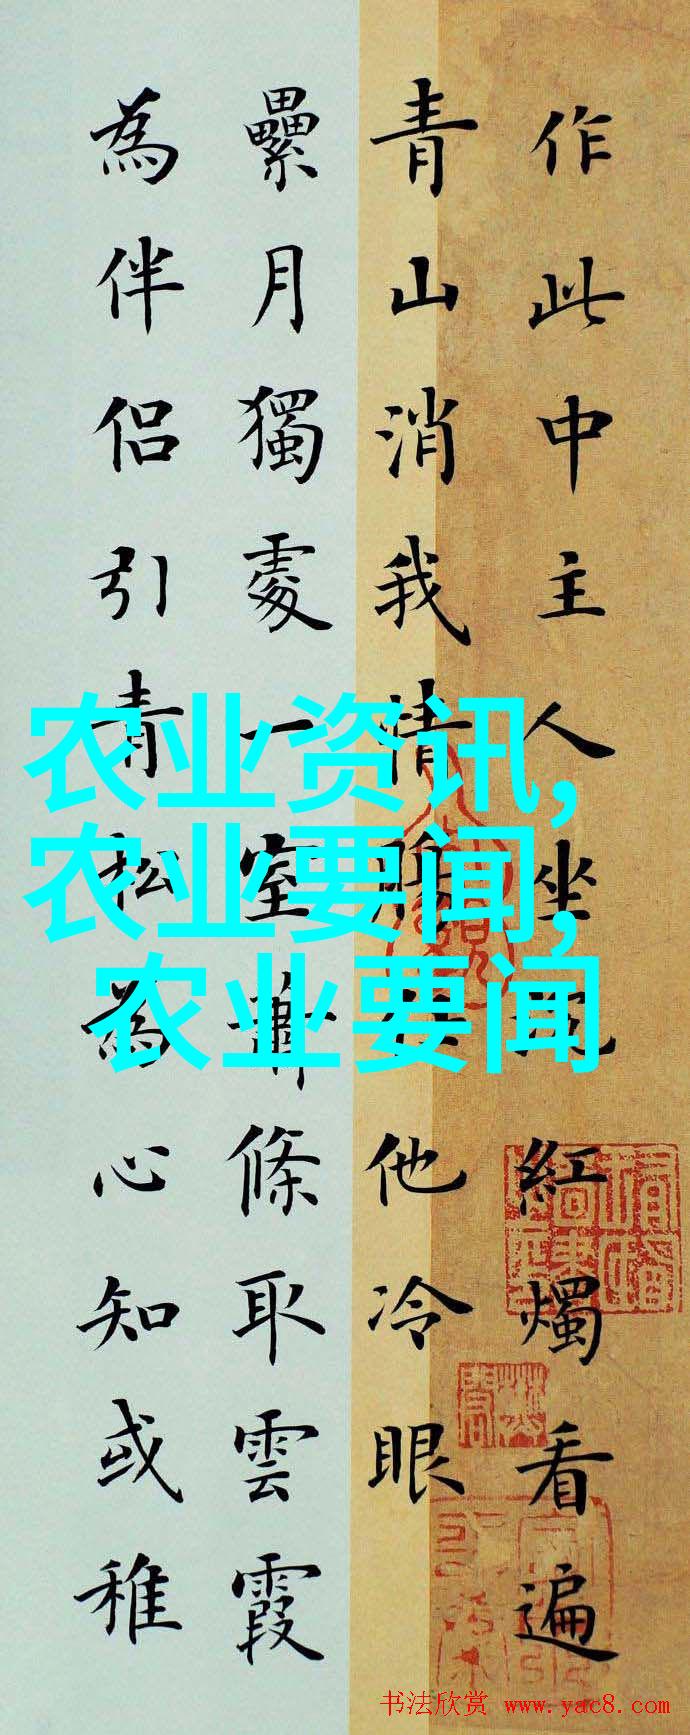 作此中主人坐
紅燭看遍
青山消我情
他冷眼
纍月獨處一室蕭條取雲霞
為伴侶引青松為心知或稚
农业资讯,
农业要闻,
农业要闻
书法欣赏 www.yac8.com